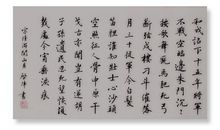 和戎詔下十五年將軍
不戰空臨邊朱門沉〻
按歌舞廄馬肥死弓
斷弦戍樓刁斗催落
月三十從軍今白髮
笛裏誰知壯士心沙頭
空照征人骨中原干
戈古亦聞豈有逆胡傳
子孫遺民忍死望恢復
幾處今宵垂淚痕
宋陸游關山月